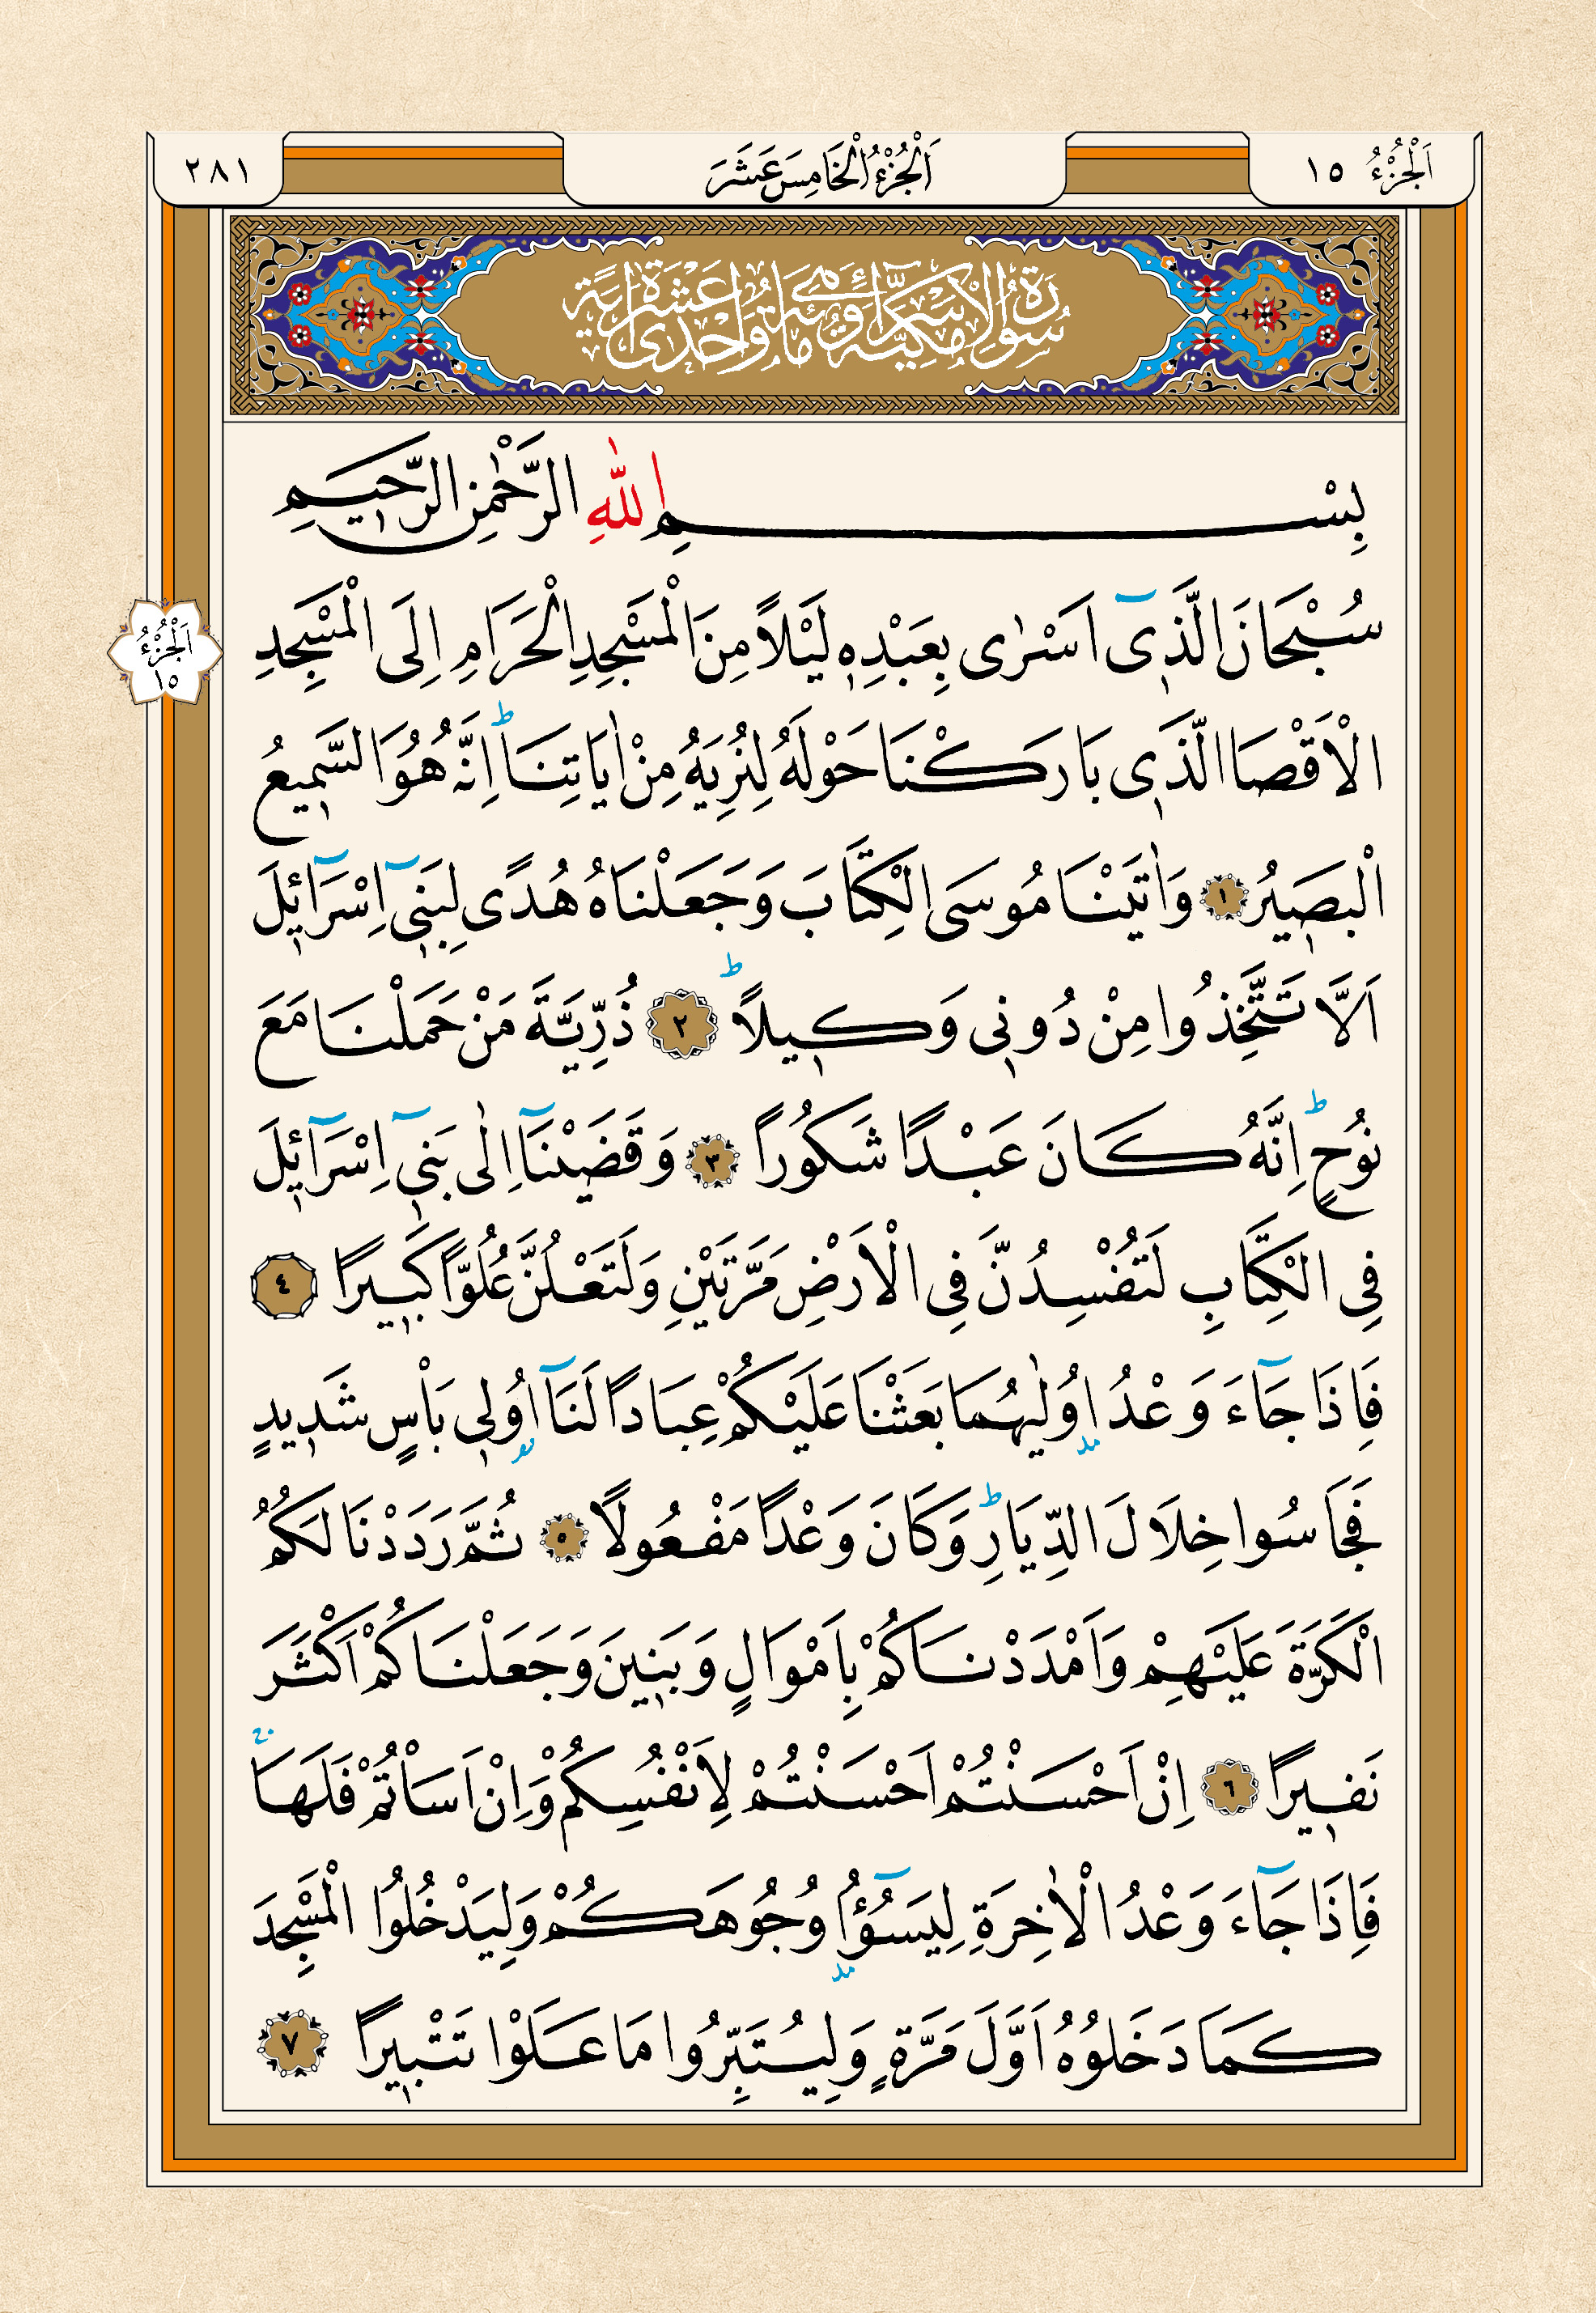 اَلْجُزْءُ ١٥
اَلْجُزْءُ الْخَامِسَ عَشَرَ
٢٨١
سُورَةُ الْاِسْرَٓاءِ مَكِّيَّةٌ وَهِىَ مِائَةٌ وَاِحْدٰى عَشْرَةَ اٰيَةً
بِسْمِ اللّٰهِ الرَّحْمٰنِ الرَّحٖيمِ
سُبْحَانَ الَّذٖٓى اَسْرٰى بِعَبْدِهٖ لَيْلًا مِنَ الْمَسْجِدِ الْحَرَامِ اِلَى الْمَسْجِدِ
اَلْجُزْءُ
١٥
الْاَقْصَا الَّذٖى بَارَكْنَا حَوْلَهُ لِنُرِيَهُ مِنْ اٰيَاتِنَاؕ اِنَّهُ هُوَ السَّمٖيعُ
الْبَصٖيرُ ١ وَاٰتَيْنَا مُوسَى الْكِتَابَ وَجَعَلْنَاهُ هُدًى لِبَنٖٓى اِسْرَٓائٖلَ
اَلَّا تَتَّخِذُوا مِنْ دُونٖى وَكٖيلًاؕ ٢ ذُرِّيَّةَ مَنْ حَمَلْنَا مَعَ
نُوحٍؕ اِنَّهُ كَانَ عَبْدًا شَكُورًا ٣ وَقَضَيْنَٓا اِلٰى بَنٖٓى اِسْرَٓائٖلَ
فِى الْكِتَابِ لَتُفْسِدُنَّ فِى الْاَرْضِ مَرَّتَيْنِ وَلَتَعْلُنَّ عُلُوًّا كَبٖيرًا ٤
فَاِذَا جَٓاءَ وَعْدُ اُو۫لٰيهُمَا بَعَثْنَا عَلَيْكُمْ عِبَادًا لَنَٓا اُو۬لٖى بَاْسٍ شَدٖيدٍ
فَجَاسُوا خِلَالَ الدِّيَارِؕ وَكَانَ وَعْدًا مَفْعُولًا ٥ ثُمَّ رَدَدْنَا لَكُمُ
الْكَرَّةَ عَلَيْهِمْ وَاَمْدَدْنَاكُمْ بِاَمْوَالٍ وَبَنٖينَ وَجَعَلْنَاكُمْ اَكْثَرَ
نَفٖيرًا ٦ اِنْ اَحْسَنْتُمْ اَحْسَنْتُمْ لِاَنْفُسِكُمْ وَاِنْ اَسَاْتُمْ فَلَهَا
فَاِذَا جَٓاءَ وَعْدُ الْاٰخِرَةِ لِيَسُٓوؤُ۫ا وُجُوهَكُمْ وَلِيَدْخُلُوا الْمَسْجِدَ
كَمَا دَخَلُوهُ اَوَّلَ مَرَّةٍ وَلِيُتَبِّرُوا مَا عَلَوْا تَتْبٖيرًا ٧